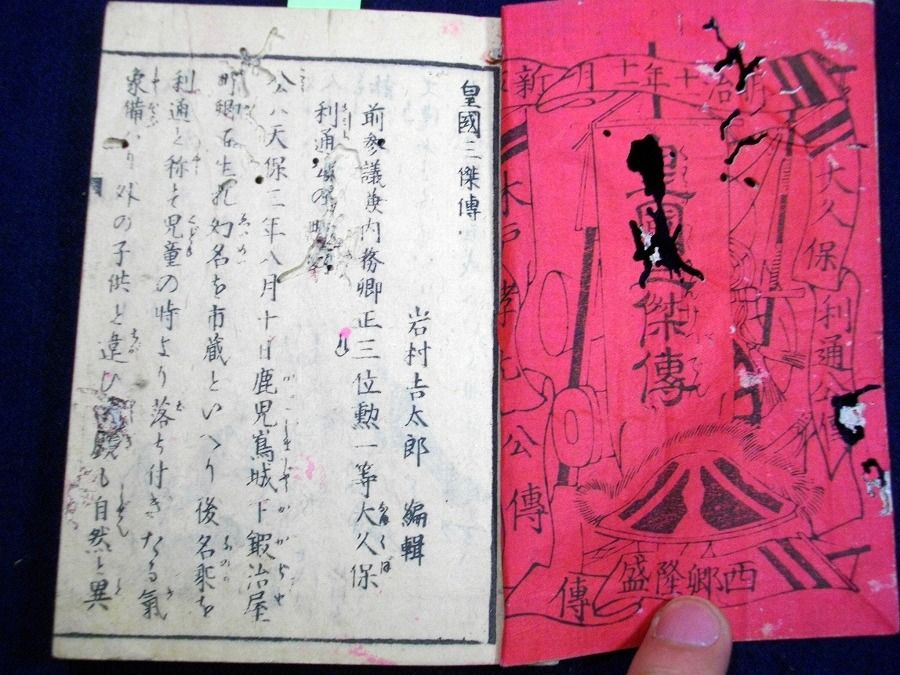 明治十年十一月新
大久保
利通公傳
皇國三傑傳
木戸孝允公傳
西郷隆盛
傳
皇國三傑傳
岩村吉太郎 編輯
前參議兼内務卿正三位勲一等大久保
利通
公ハ天保三年八月十日鹿児嶌城下鍛冶屋
町 生れ幼名を市蔵といへり後名乗を
利通と称す児童の時より落ち付きたる氣
象備ハり外の子供と違ひ 自然と異